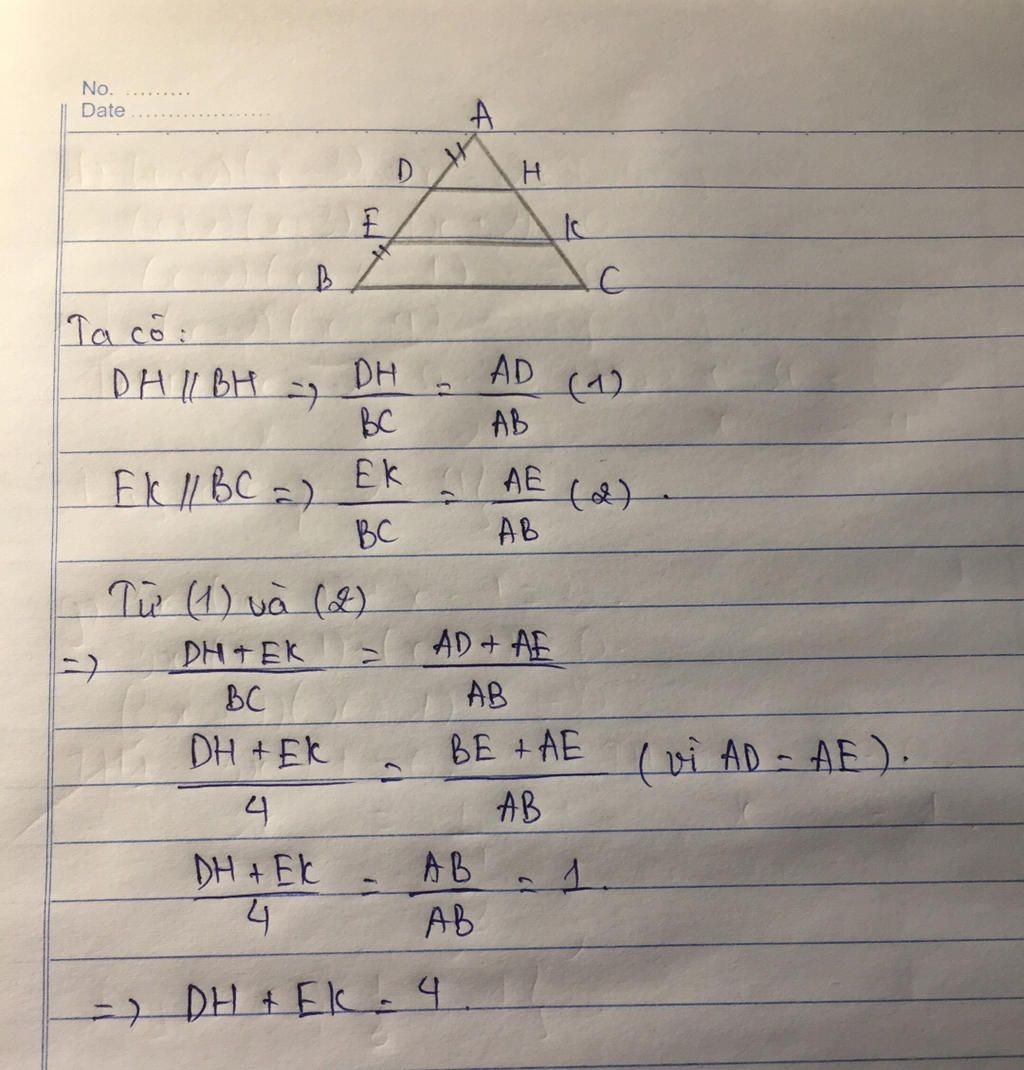 No. .........
Date ...................
A
D H
E K
B C
Ta có:
DH // BH => DH/BC = AD/AB (1)
EK // BC => EK/BC = AE/AB (2).
Từ (1) và (2)
=> DH + EK/BC = AD + AE/AB
DH + EK/4 = BE + AE/AB (vì AD = AE).
DH + EK/4 = AB/AB = 1.
=> DH + EK = 4.